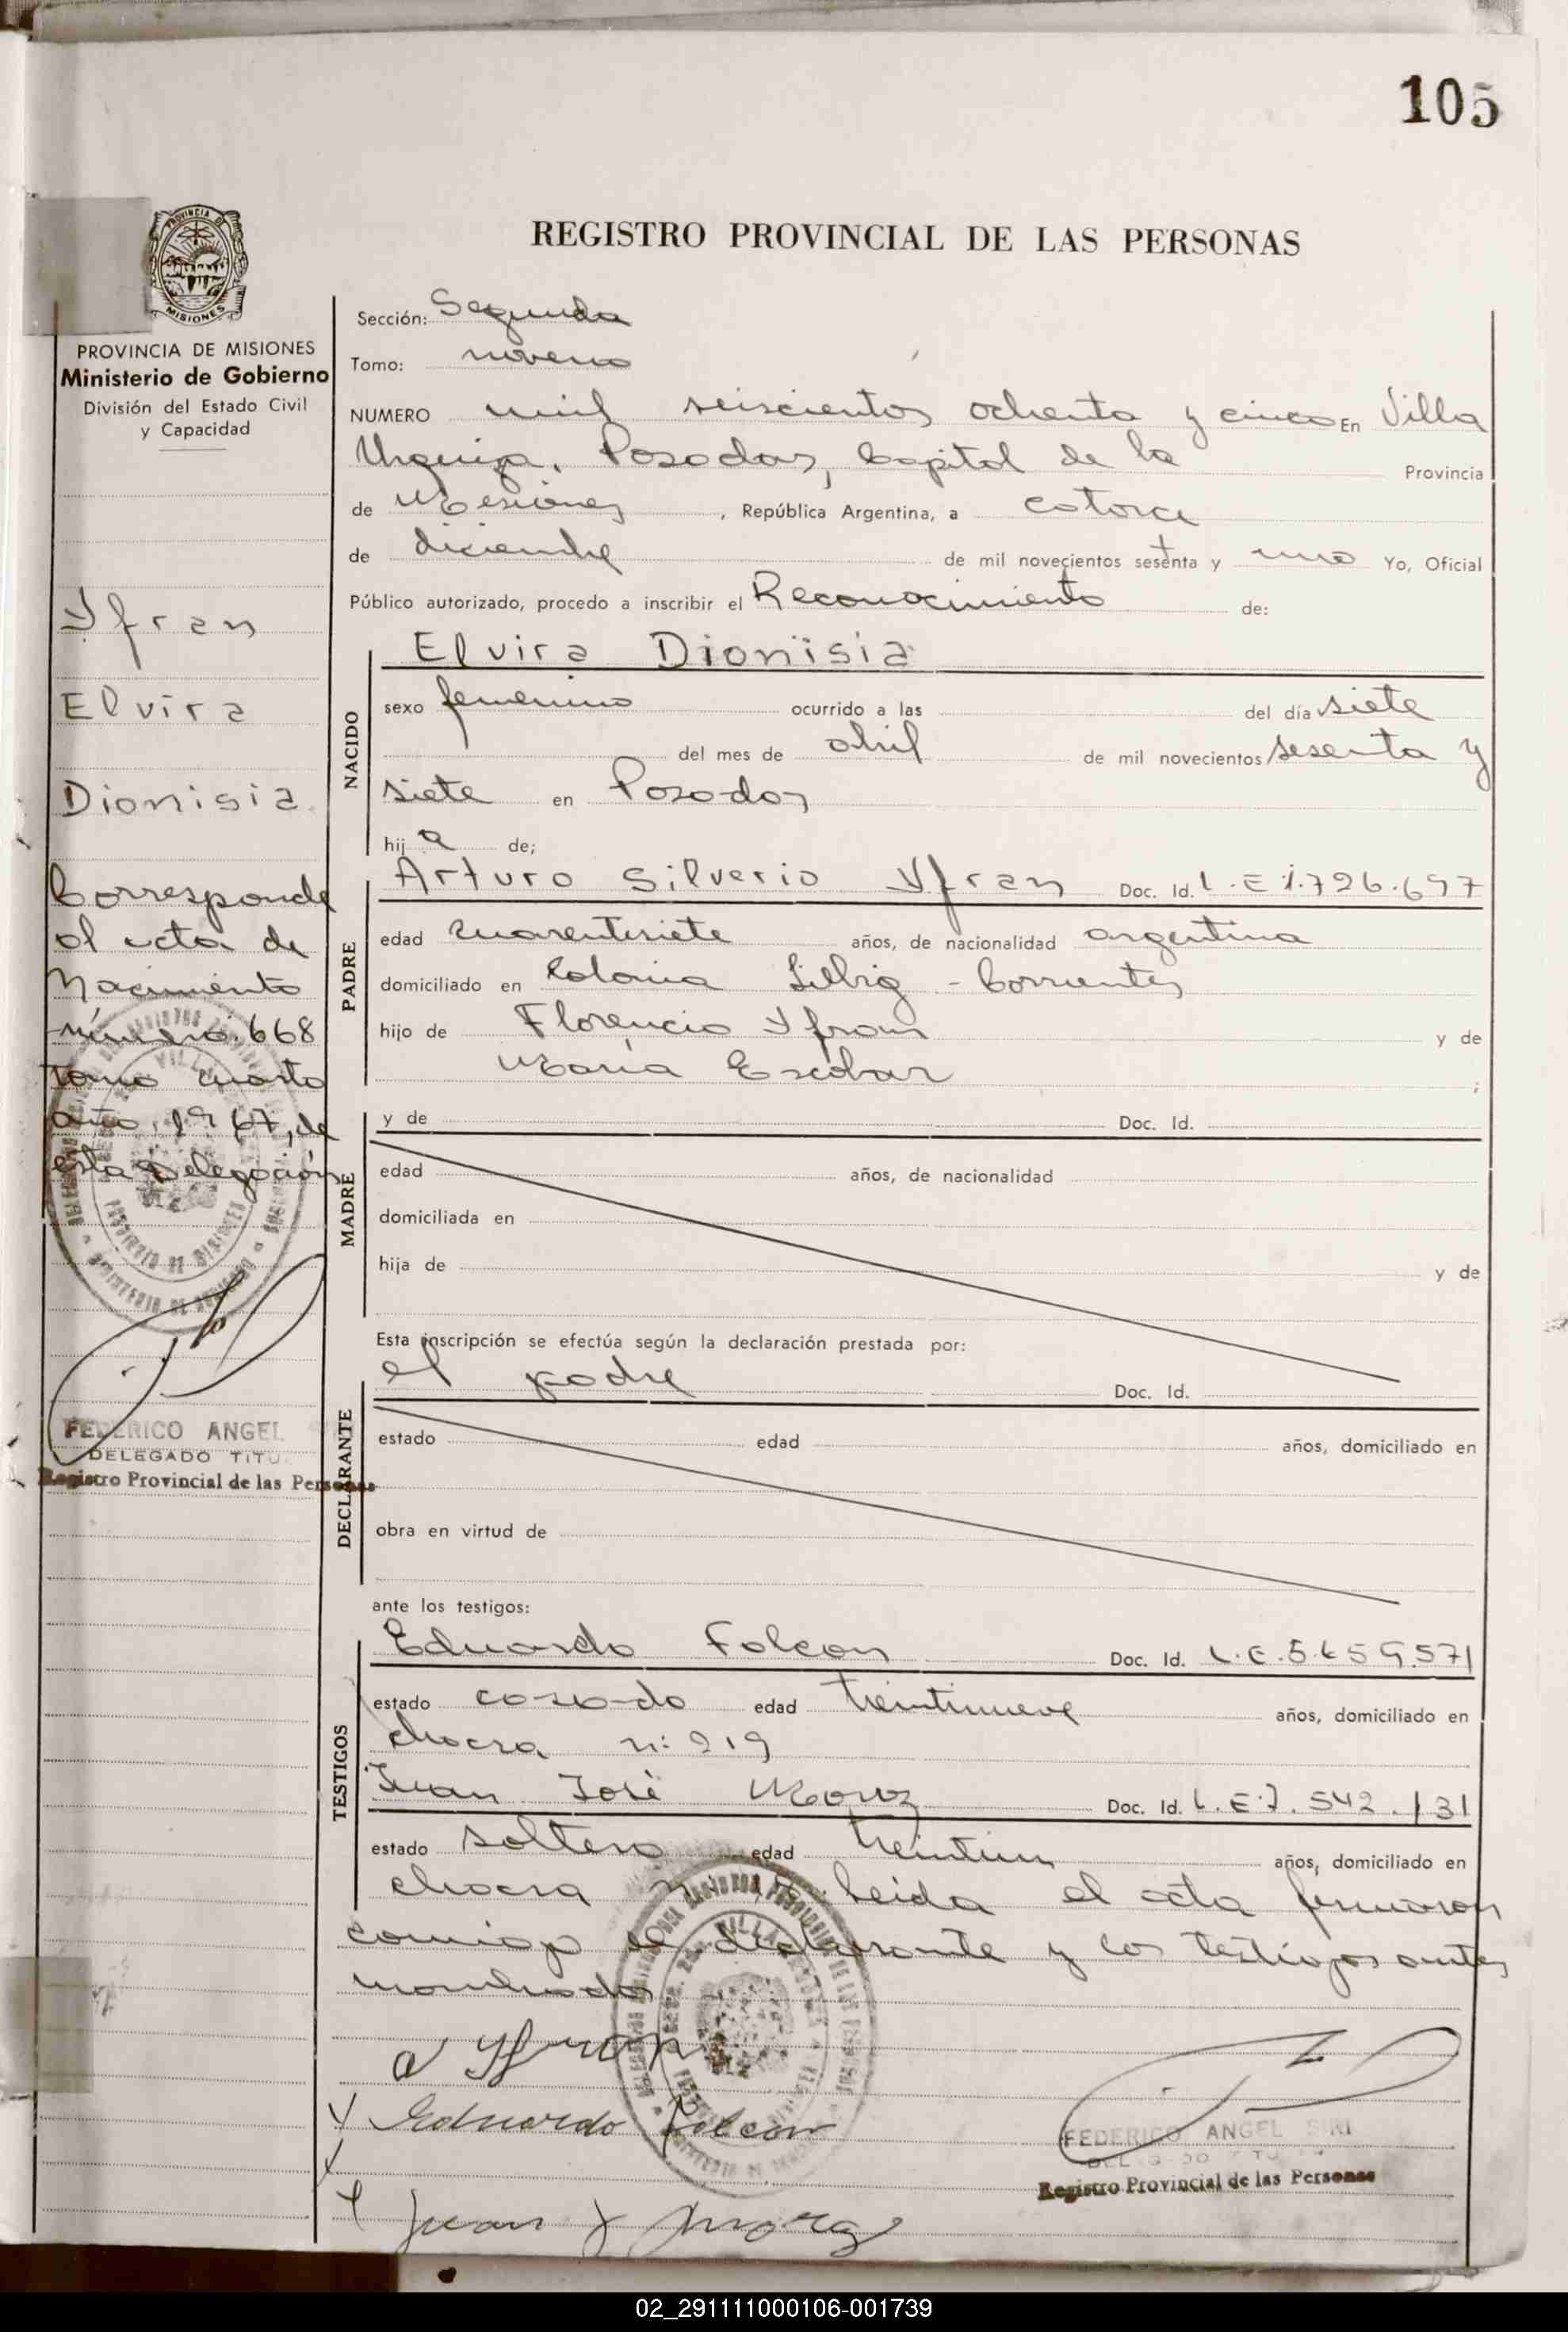 105
REGISTRO PROVINCIAL DE LAS PERSONAS
PROVINCIA DE MISIONES
PROVINCIA DE MISIONES
Ministerio de Gobierno
División del Estado Civil
y Capacidad
Yfran
Elvira
Dionisia
Corresponde
al acta de
Nacimiento
número 668
tomo cuarto
año 1967, de
esta Delegación
FEDERICO ANGEL
DELEGADO TITU
Registro Provincial de las Personas
Sección: Segunda
Tomo: noveno
NUMERO mil seiscientos ochenta y cinco En Villa
Urquiza, Posadas, Capital de la Provincia
de Misiones, República Argentina, a catorce
de diciembre de mil novecientos sesenta y uno Yo, Oficial
Público autorizado, procedo a inscribir el Reconocimiento de:
NACIDO
Elvira Dionisia
sexo femenino ocurrido a las del día siete
del mes de abril de mil novecientos sesenta y
siete en Posadas
hij a de;
PADRE
Arturo Silverio Yfran Doc. Id. L.E 1.726.697
edad cuarentisiete años, de nacionalidad argentina
domiciliado en Colonia Liebig - Corrientes
hijo de Florencio Yfran y de
María Escobar ;
MADRE
y de Doc. Id.
edad años, de nacionalidad
domiciliada en
hija de y de
Esta inscripción se efectúa según la declaración prestada por:
el padre Doc. Id.
DECLARANTE
estado edad años, domiciliado en
obra en virtud de
ante los testigos:
TESTIGOS
Eduardo Falcon Doc. Id. L.E.5.659.571
estado casado edad treintinueve años, domiciliado en
chacra n: 219
Juan José Doc. Id. L.E.7.542.131
estado soltero edad treintiun años, domiciliado en
chacra Leida el acta firmaron
conmigo el declarante y los testigos antes
nombrados
a Yfran
Eduardo Falcon
Juan J
FEDERICO ANGEL SIRI
Registro Provincial de las Personas
02_291111000106-001739